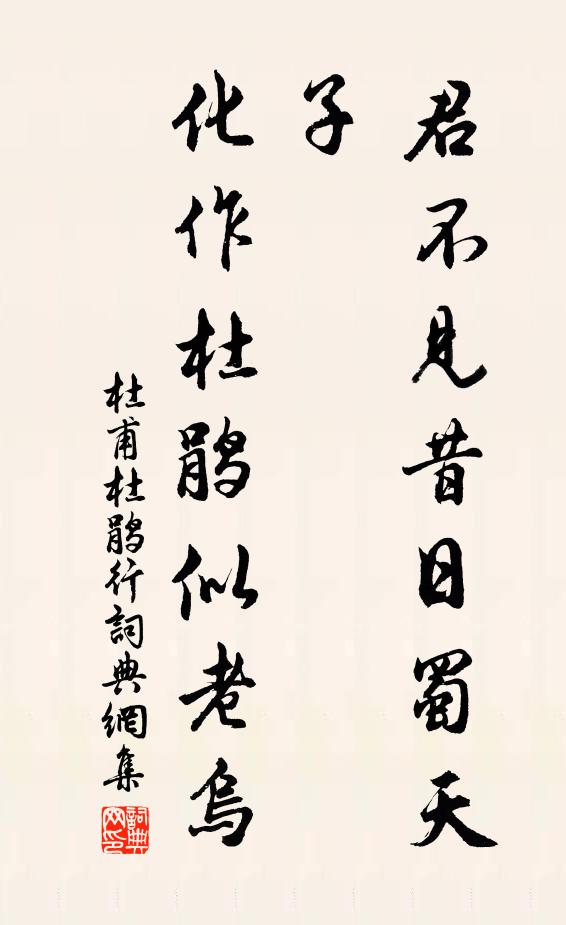 君不见昔日蜀天
子
化作杜鹃似老乌
杜甫杜鹃行詞典網集
詞典
网印